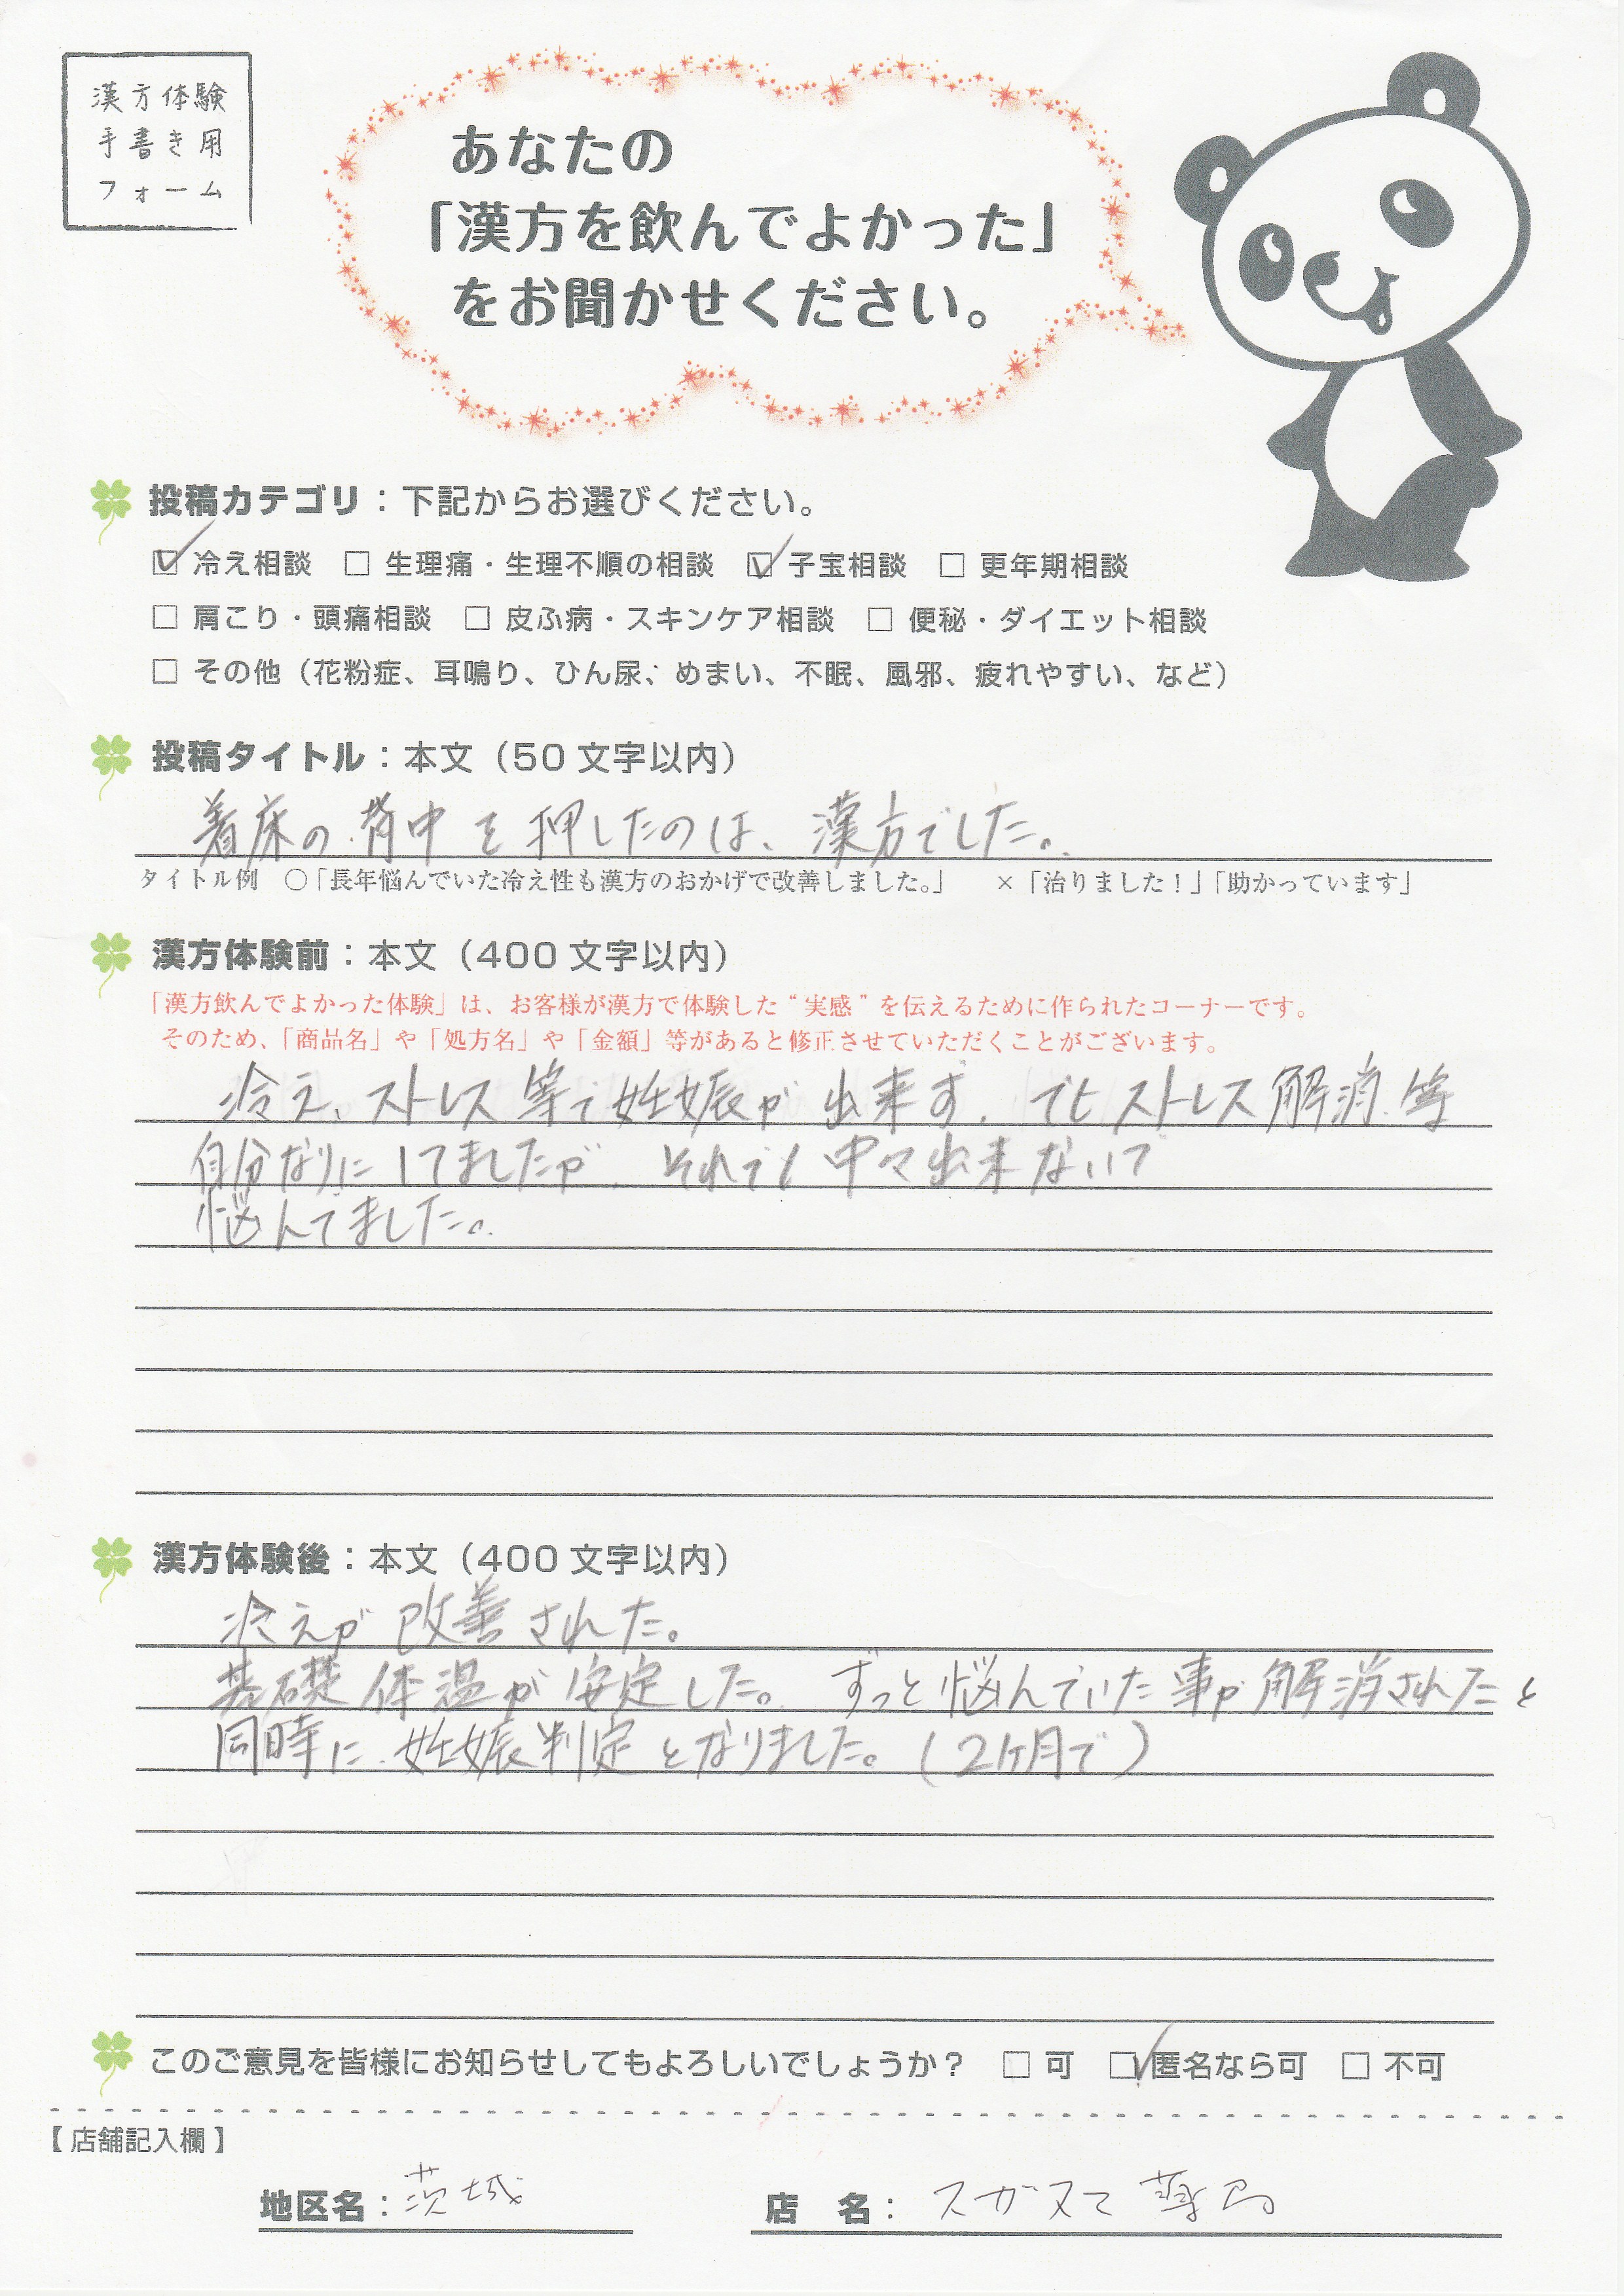 漢方体験
手書き用
フォーム
あなたの
「漢方を飲んでよかった」
をお聞かせください。
投稿カテゴリ：下記からお選びください。
☑ 冷え相談 □ 生理痛・生理不順の相談 ☑ 子宝相談 □ 更年期相談
□ 肩こり・頭痛相談 □ 皮ふ病・スキンケア相談 □ 便秘・ダイエット相談
□ その他（花粉症、耳鳴り、ひん尿、めまい、不眠、風邪、疲れやすい、など）
投稿タイトル：本文（50 文字以内）
着床の背中を押したのは、漢方でした。
タイトル例 ○「長年悩んでいた冷え性も漢方のおかげで改善しました。」 ×「治りました！」「助かっています」
漢方体験前：本文（400 文字以内）
「漢方飲んでよかった体験」は、お客様が漢方で体験した“実感”を伝えるために作られたコーナーです。
そのため、「商品名」や「処方名」や「金額」等があると修正させていただくことがございます。
冷え、ストレス等で妊娠が出来ず、でもストレス解消等
自分なりにしてましたが、それでも中々出来ないで
悩んでました。
漢方体験後：本文（400 文字以内）
冷えが改善された。
基礎体温が安定した。ずっと悩んでいた事が解消されたと
同時に妊娠判定となりました。（2ヶ月で）
このご意見を皆様にお知らせしてもよろしいでしょうか？ □ 可 ☑ 匿名なら可 □ 不可
【店舗記入欄】
地区名：茨城 店 名：スガヌマ薬局